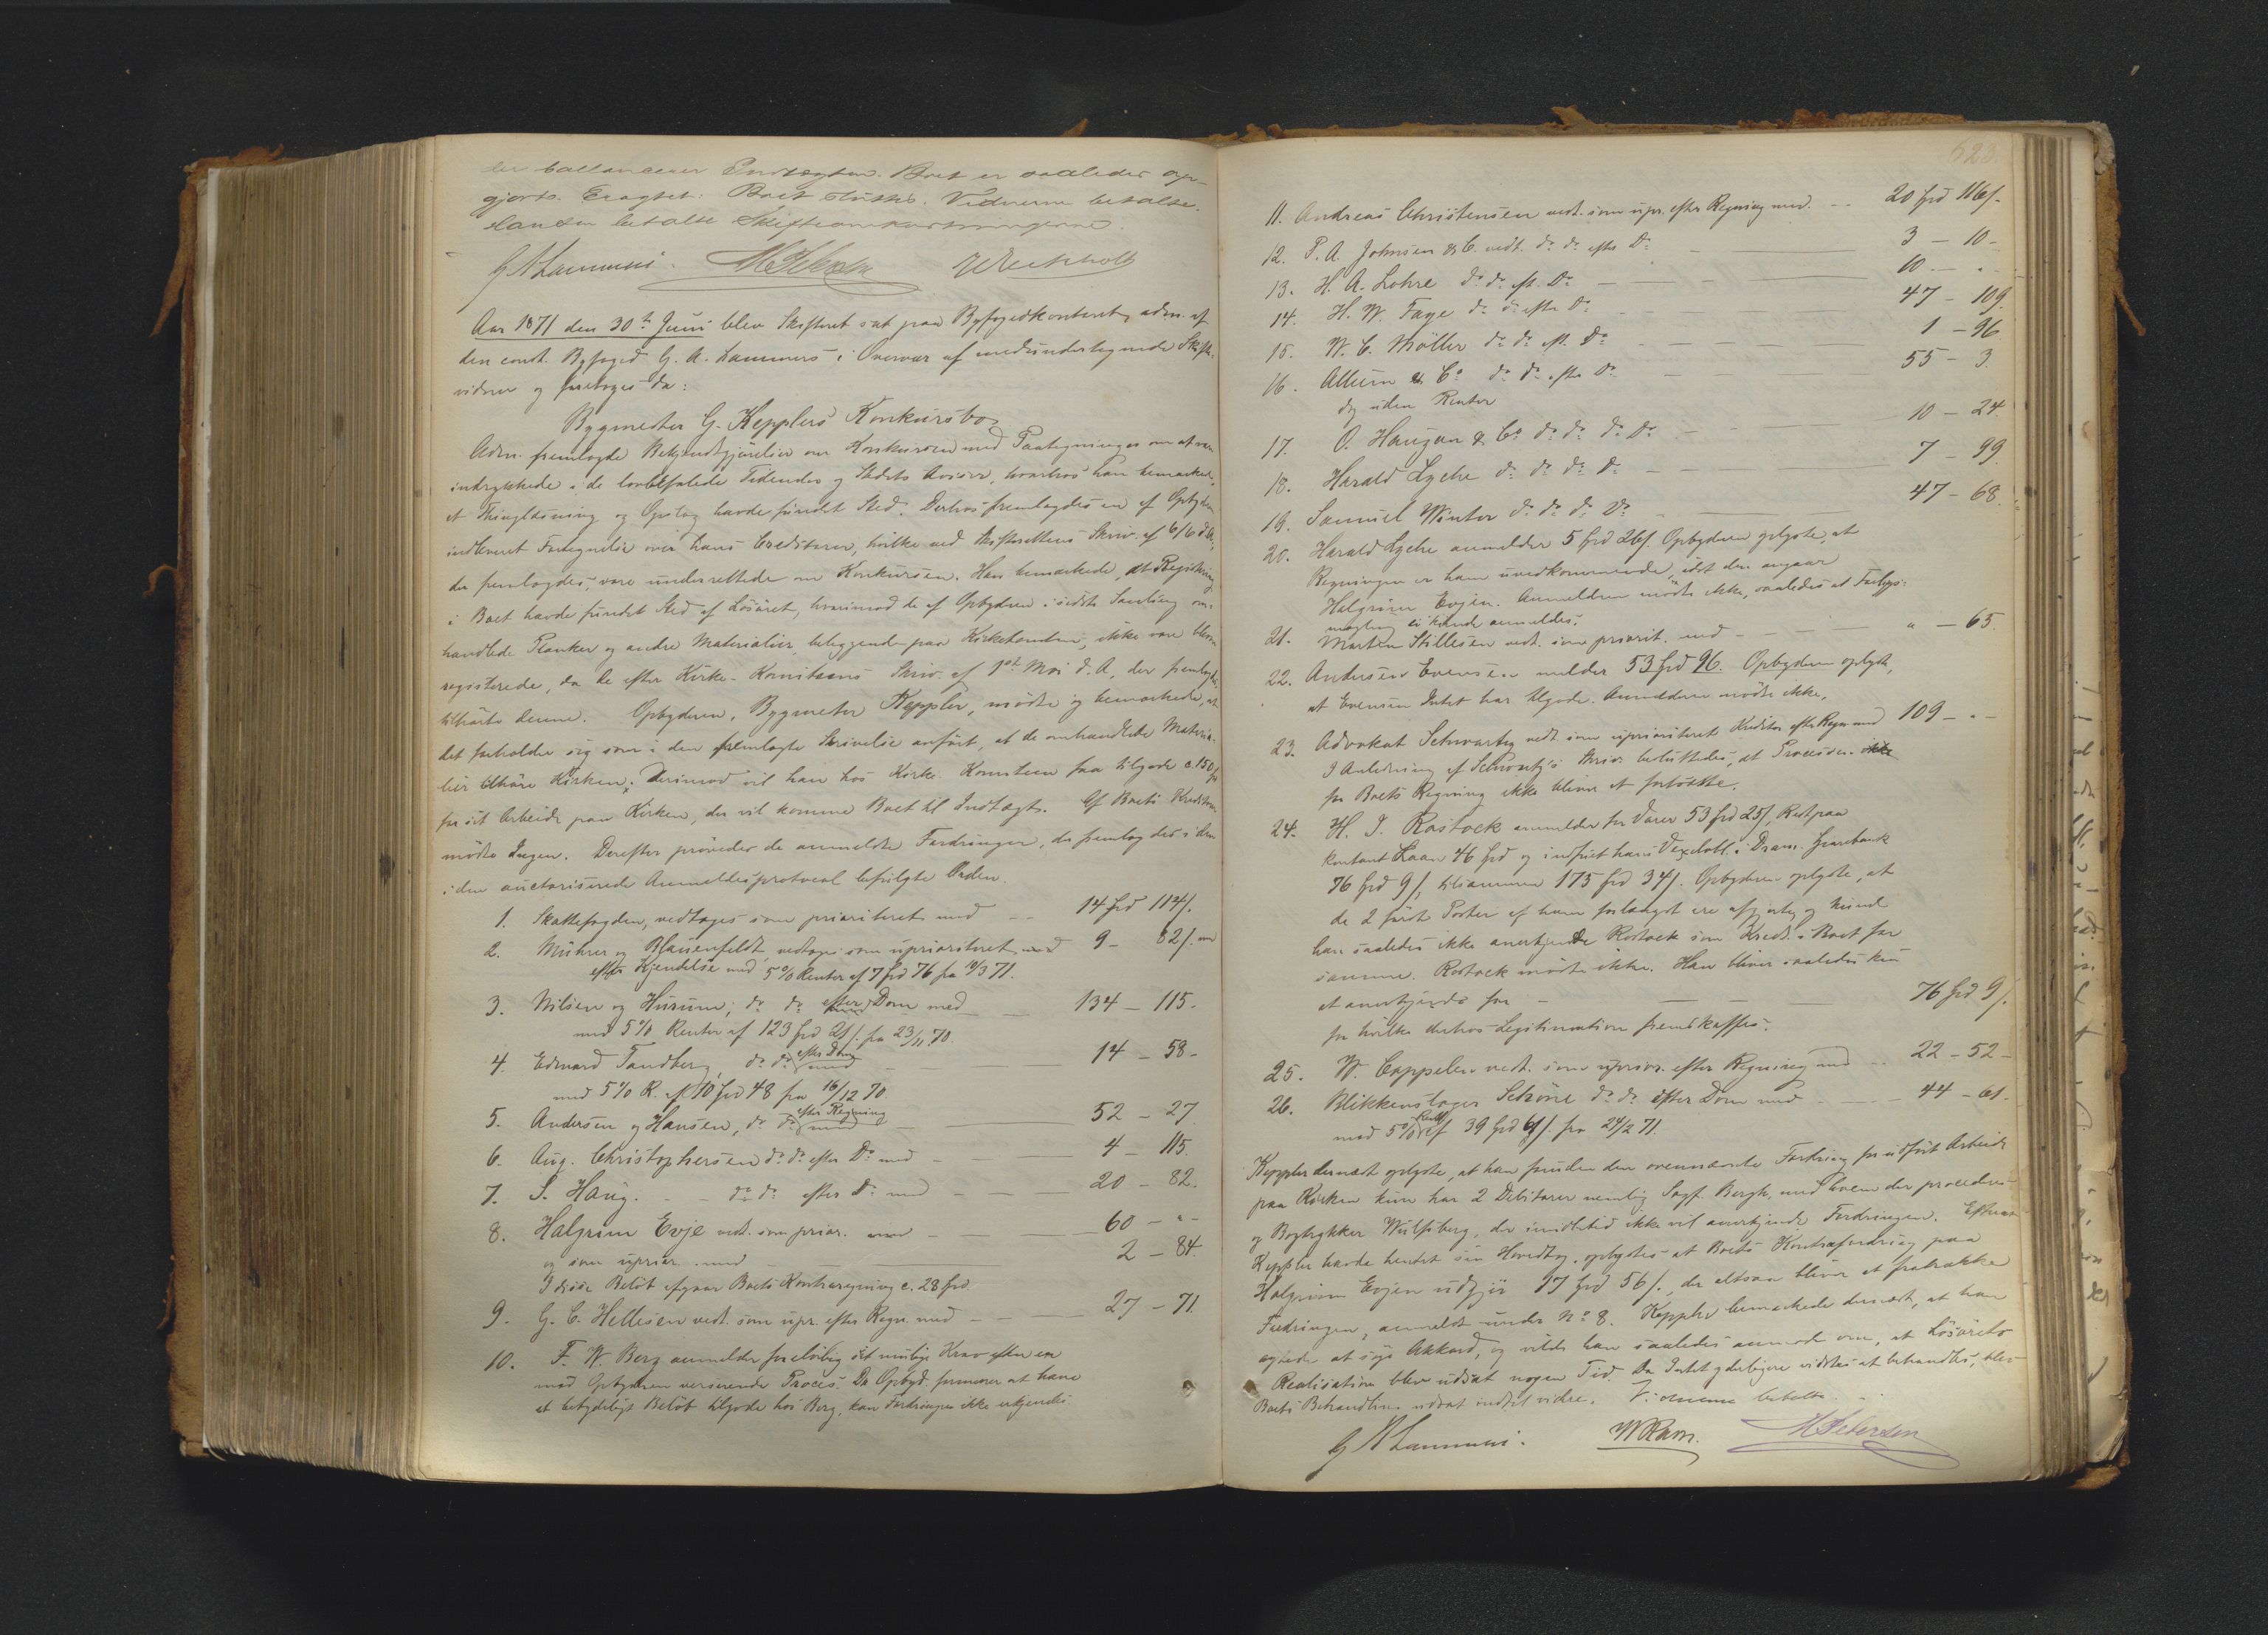 der ballancerer Indtægten. Boet er saaledes op-
gjort. Eragtet: Boet sluttes. Vidnerne betalte.
betalte Skifteomkostningerne.
G A Lammers. M Petersen
Aar 1871 den 30te Juni blev Skifteret sat paa Byfogedkontoret, adm. af
den const. Byfoged G. A. Lammers i Overvær af medundertegnede Skifte-
vidner og foretoges da:
Bygmester G. Kepplers Konkursbo.
Adm. fremlagde Bekjendtgjørelser om Konkursen med Paategninger om at være
indrykkede i de lovbefalede Tidender og Stadets Aviser, hvorhos han bemærkede,
at Thinglæsning og Opslag havde fundet Sted. Derhos fremlagdes en af Opbyderen
indleveret Fortegnelse over hans Creditorer, hvilke ved Skifterettens Skriv. af 6/6 d. A.,
der fremlagdes, vare underrettede om Konkursen. Han bemærkede, at Registrering
i Boet havde fundet Sted af Løsøret, hvorimod de af Opbyderen i sidste Samling om-
handlede Planker og andre Materialier, beliggende paa Kirketomten, ikke vare blevne
registrerede, da de efter Kirke-Komiteens Skriv. af 1ste Mai d. A., der fremlagdes,
tilhørte denne. Opbyderen, Bygmester Keppler, mødte og bemærkede, at
det forholder sig som i den fremlagte Skrivelse anført, at de omhandlede Materia-
lier tilhøre Kirken; derimod vil han hos Kirke-Komiteen faa tilgode c. 150 Spd
for sit Arbeide paa Kirken, der vil komme Boet til Indtægt. Af Boets Kreditorer
mødte Ingen. Derefter prøvedes de anmeldte Fordringer, der fremlagdes i den
i den auctoriserede Anmeldelsesprotocol befulgte Orden.
1. Skattefogden, vedtages som prioriteret med 14 Spd 114 s.
2. Mührer og Blauenfeldt, vedtages som uprioriteret med 9 - 82 s. med
efter Kjendelse med 5 % Renter af 7 Spd 76 fra 10/3 71.
3. Nilsen og Husum, do do efter Dom med 134 - 115.
med 5 % Renter af 123 Spd 21 s. fra 23/11 70.
4. Edvard Tandberg, do do efter Dom med 14 - 58 -
med 5 % R. af 10 Spd 48 fra 16/12 70
5. Andersen og Hansen, do do efter Regning med 52 - 27
6. Aug. Christophersen do do efter Do med 4 - 115
7. S. Haug. do do efter Do med 20 - 82.
8. Halgrim Evje vedt. som prior. med 60 - " -
og som uprior. med 2 - 84.
I disse Beløb afgaar Boets Kontraregning c. 28 Spd.
9. G. C. Hellesen vedt. som upr. efter Regn. med 27 - 71.
10. F. W. Berg anmelder foreløbig sit mulige Krav efter en
mod Opbyderen verserende Proces. Da Opbyd. formener at have
et betydeligt Beløb tilgode hos Berg, kan Fordringen ikke erkjendes
623.
11. Andreas Christensen vedt. som upr. efter Regning med 20 Spd 116 s.
12. P. A. Johnsen & C. vedt. do do efter Do 3 - 10 -
13. H. A. Lohre do do eft. Do 10 - " -
14. H. W. Faye do do efter Do 47 - 109.
15. W. C. Møller do do eft. Do 1 - 96
16. Allum & Co do do efter Do 55 - 3.
dog uden Renter
17. O. Haugan & Co do do do Do 10 - 24
18. Harald Lyche do do do Do 7 - 99
19. Samuel Winter do do do Do 47 - 68.
20. Harald Lyche anmelder 5 Spd 26 s. Opbyderen oplyste, at
Regningen er ham uvedkommende, idet den angaar
Halgrim Evjen. Anmelderen mødte ikke, saaledes at Forligs-
mægling ei kunde anmeldes.
21. Morten Stillesen vedt. som priorit. med " - 65.
22. Andersen Evensen melder 53 Spd 96. Opbyderen oplyste,
at Evensen Intet har tilgode. Anmelderen mødte ikke.
23. Advokat Schwartz vedt. som uprioriteret Kreditor efter Regn. med 109 - " -
I Anledning af Schwartz's Skriv. besluttedes, at Processen
for Boets Regning ikke bliver at fortsætte.
24. H. J. Rostock anmelder for Varer 53 Spd 25 s., Rest paa
kontant Laan 46 Spd og indfriet hans Vexelobl. i Dram. Sparebank
76 Spd 9 s., tilsammen 175 Spd 34 s. Opbyderen oplyste, at
de 2 første Poster af ham forlængst ere afgjorte, og kunde
han saaledes ikke anerkjende Rostock som Kred. i Boet for
samme. Rostock mødte ikke. Han bliver saaledes kun
at anerkjende for 76 Spd 9 s.
for hvilke derhos Legitimation fremskaffes.
25. W. Cappelen vedt. som uprior. efter Regning med 22 - 52 -
26. Blikkenslager Schøne do do efter Dom med 44 - 61.
med 5 % Rent. af 39 Spd 61 s. fra 24/2 71.
Keppler dernæst oplyste, at han foruden den ovennævnte Fordring for udført Arbeide
paa Kirken kun har 2 Debitorer nemlig Sagf. Bergh, med hvem der procederes
og Bogtrykker Wulfsberg, der imidlertid ikke vil anerkjende Fordringen. Efterat
Keppler havde hentet sin Hovedbog, oplystes at Boets Kontrafordring paa
Halgrim Evjen udgjør 17 Spd 56 s., der altsaa bliver at fratrække
Fordringen, anmeldt under No 8. Keppler bemærkede dernæst, at han
agtede at søge Akkord, og vilde han saaledes anmode om, at Løsørets
Realisation blev udsat nogen Tid. Da Intet yderligere vidstes at behandles, blev
Boets Behandling udsat indtil videre. Vidnerne betalte.
G A Lammers. W Ravn. M Petersen